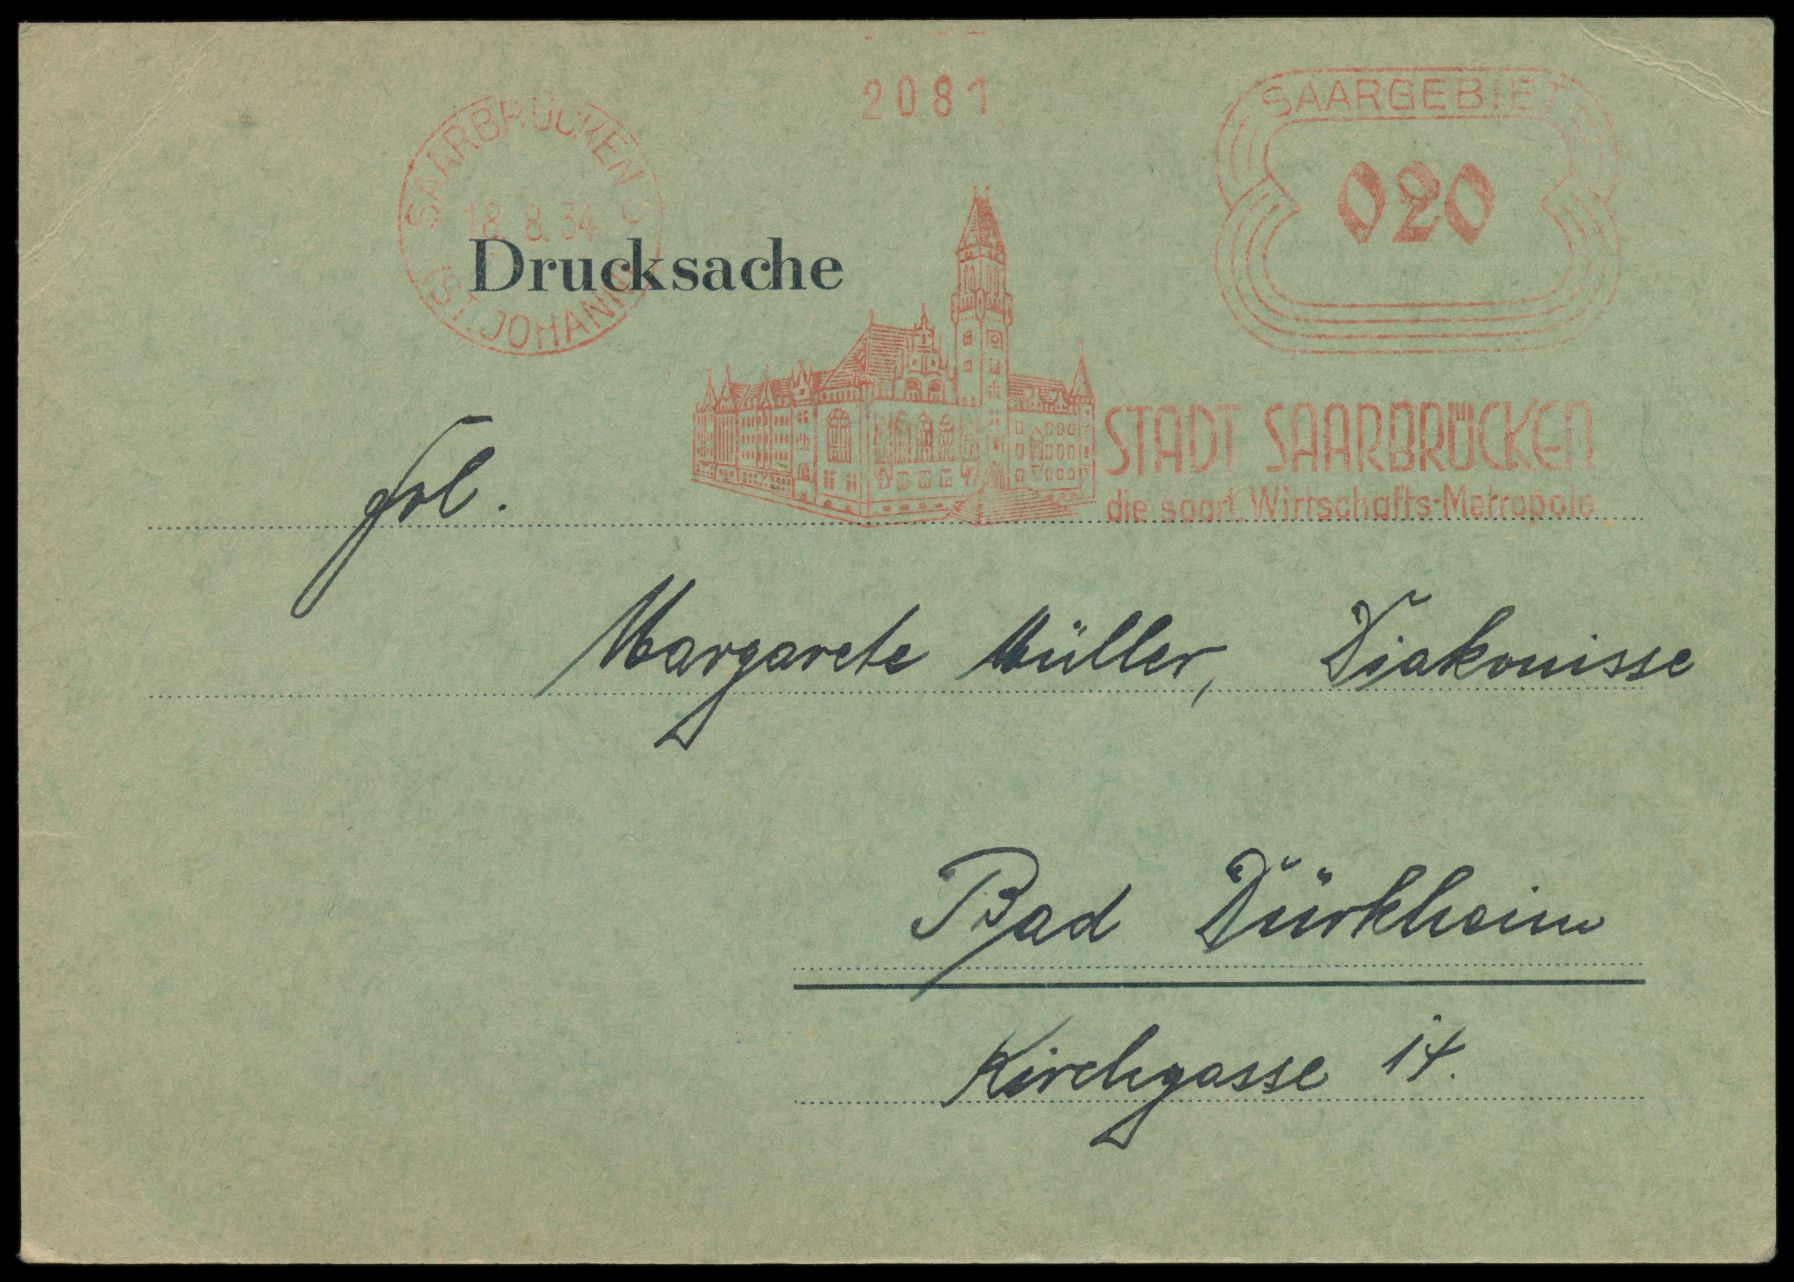 2081
SAARGEBIET
020
SAARBRÜCKEN
18.8.34
(ST. JOHANN)
Drucksache
STADT SAARBRÜCKEN
die saarl. Wirtschafts-Metropole
Frl.
Margarete Müller, Diakonisse
Bad Dürkheim
Kirchgasse 14.